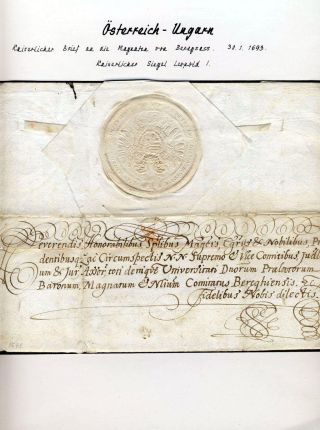 Österreich - Ungarn
Kaiserlicher Brief an die Magnaten von Beregvass. 30.1.1693.
Kaiserlicher Siegel Leopold I.
Reverendis Honorabilibus Splibus Magcis, Egrys & Nobilibus, Pru
dentibusq; ac Circumspectis N.N. Supremo & Vice Comitibus Judl
ium & Jur. Assor. toti deniq; Universitati Dnorum Prælatorum
Baronum, Magnatum & Nlium Comitatus Bereghiensis. &c.
fidelibus Nobis dilectis.